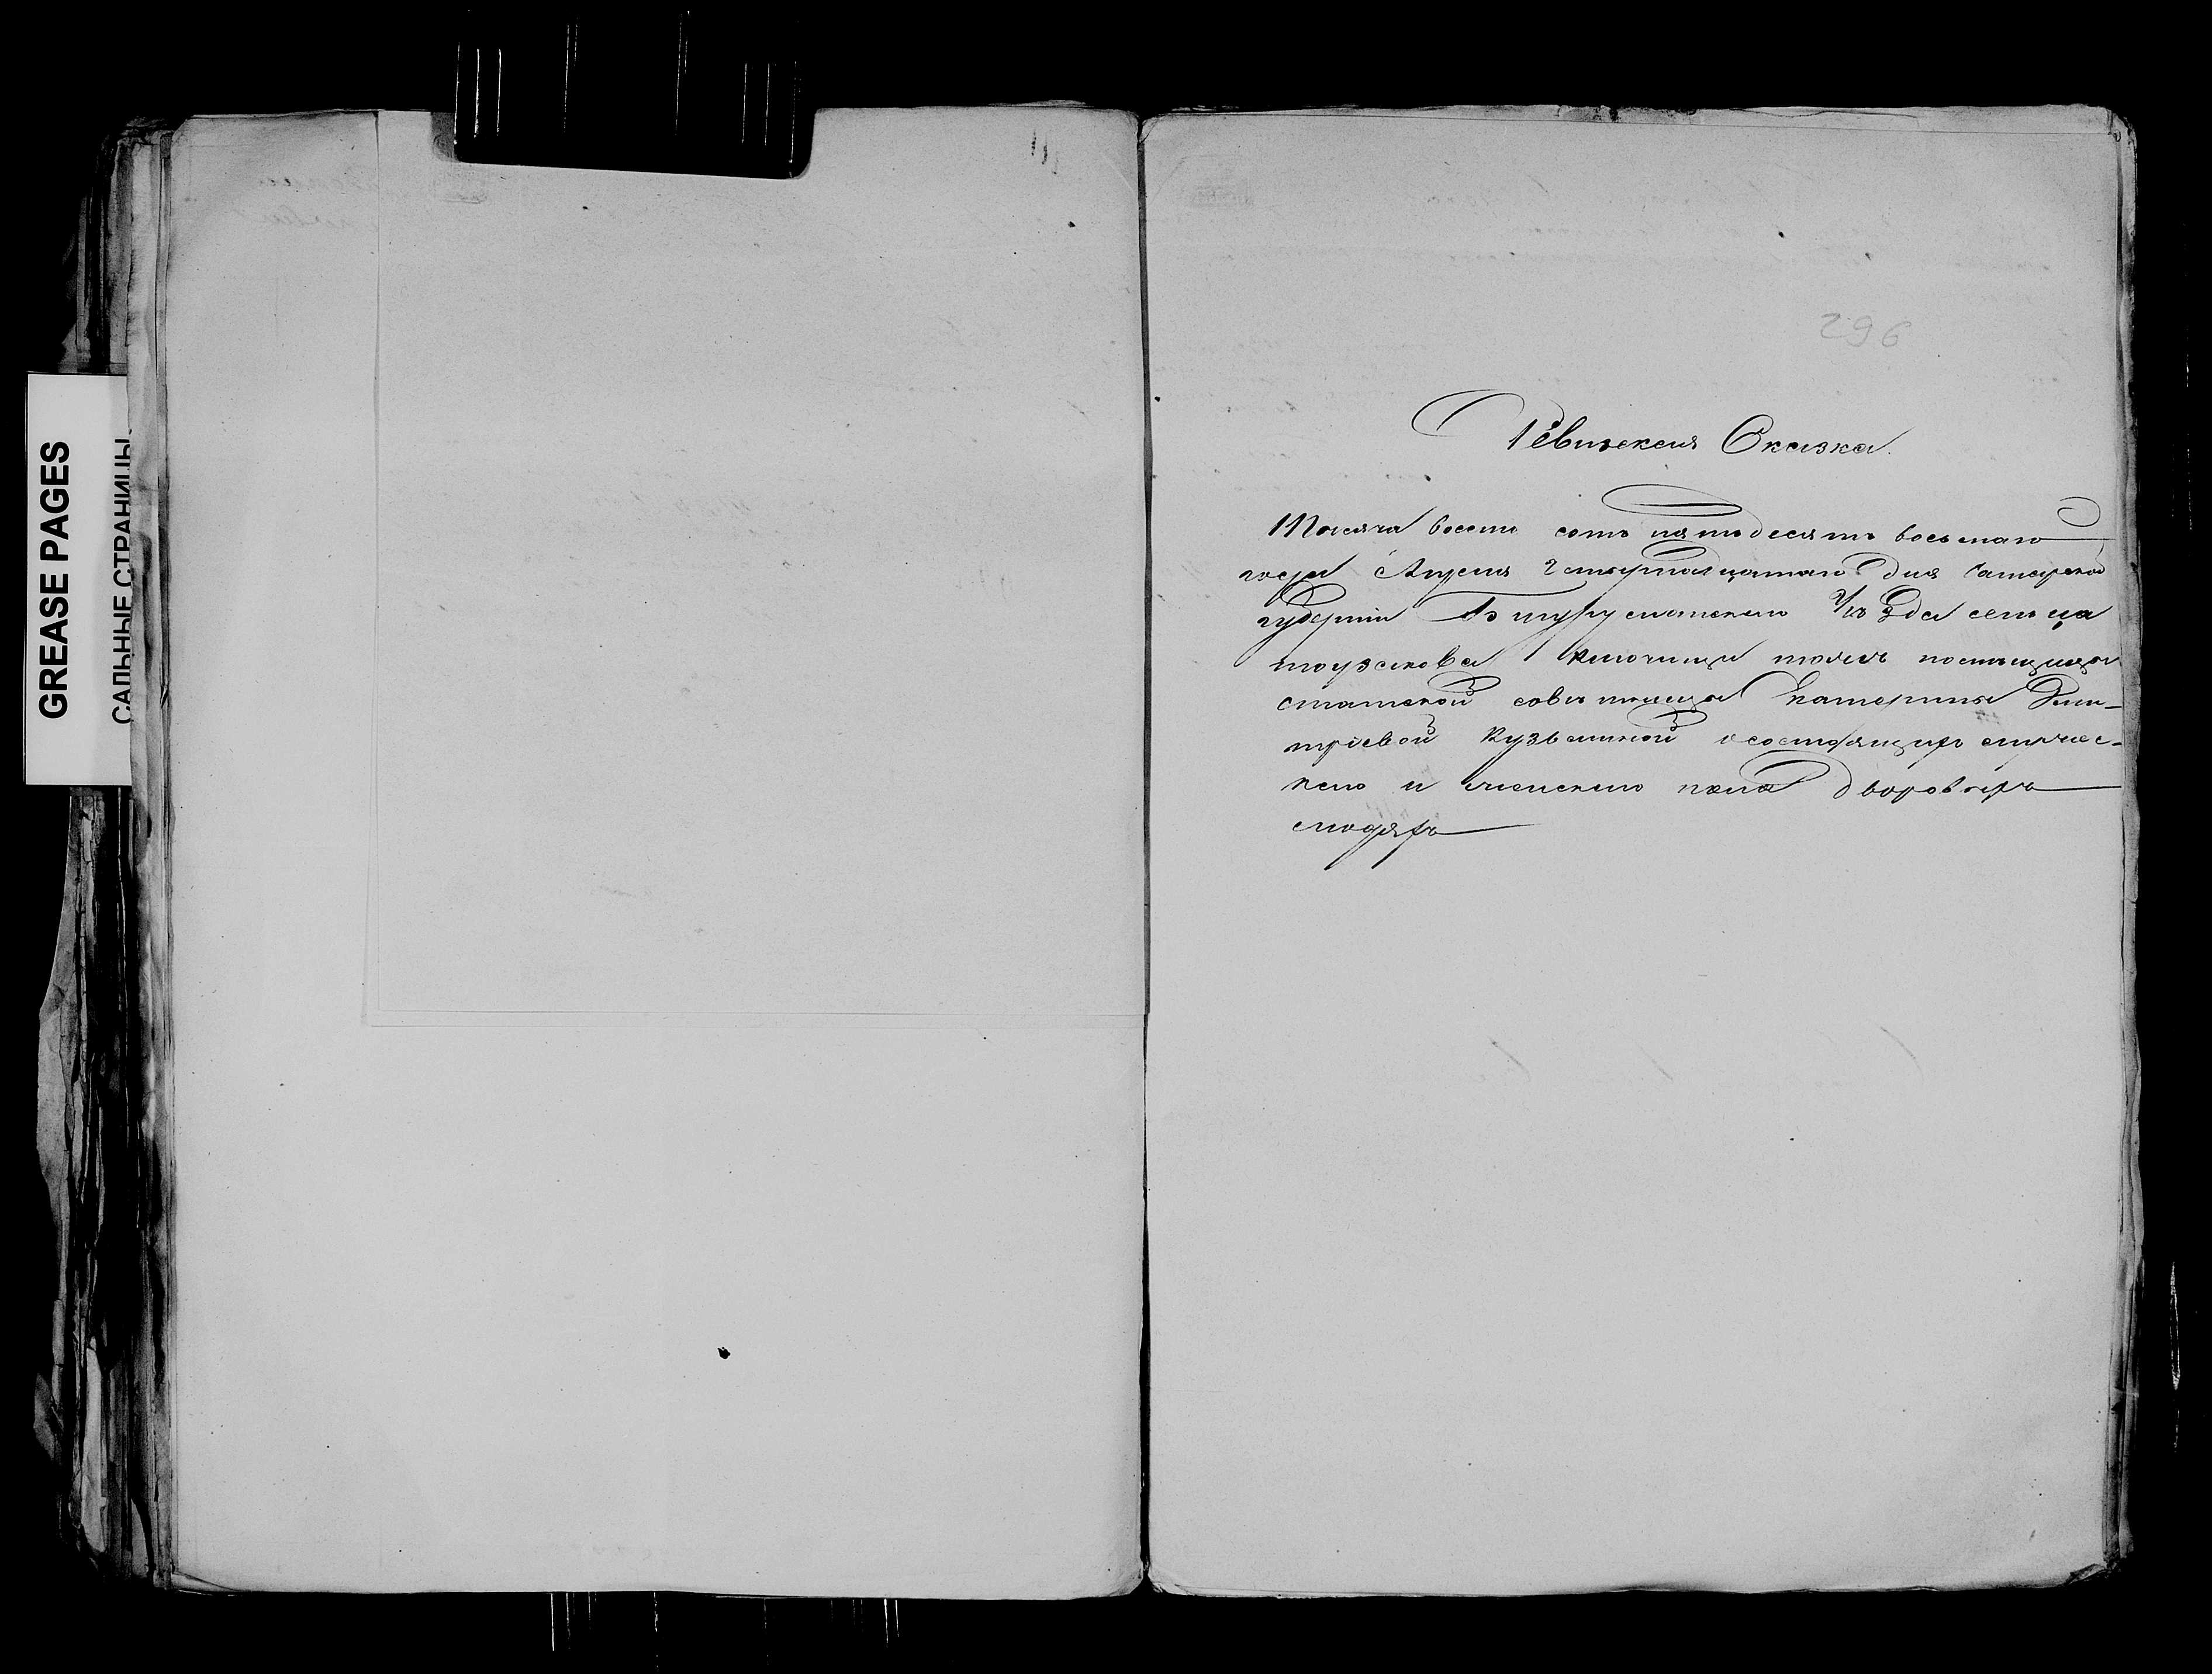 GREASE PAGES
САЛЬНЫЕ СТРАНИЦЫ
296
Ревизская Сказка.
Тысяча восемь сотъ пятьдесятъ восьмаго
года Апреля Четырнадцатаго дня Самарской
губерніи Бугурусланскаго Уѣзда сельца
Ключи тожъ помѣщицы
статской совѣтницы Катерины Дми-
тріевой Кузьминой о состоящихъ мужес-
каго и женскаго пола дворовыхъ
людяхъ